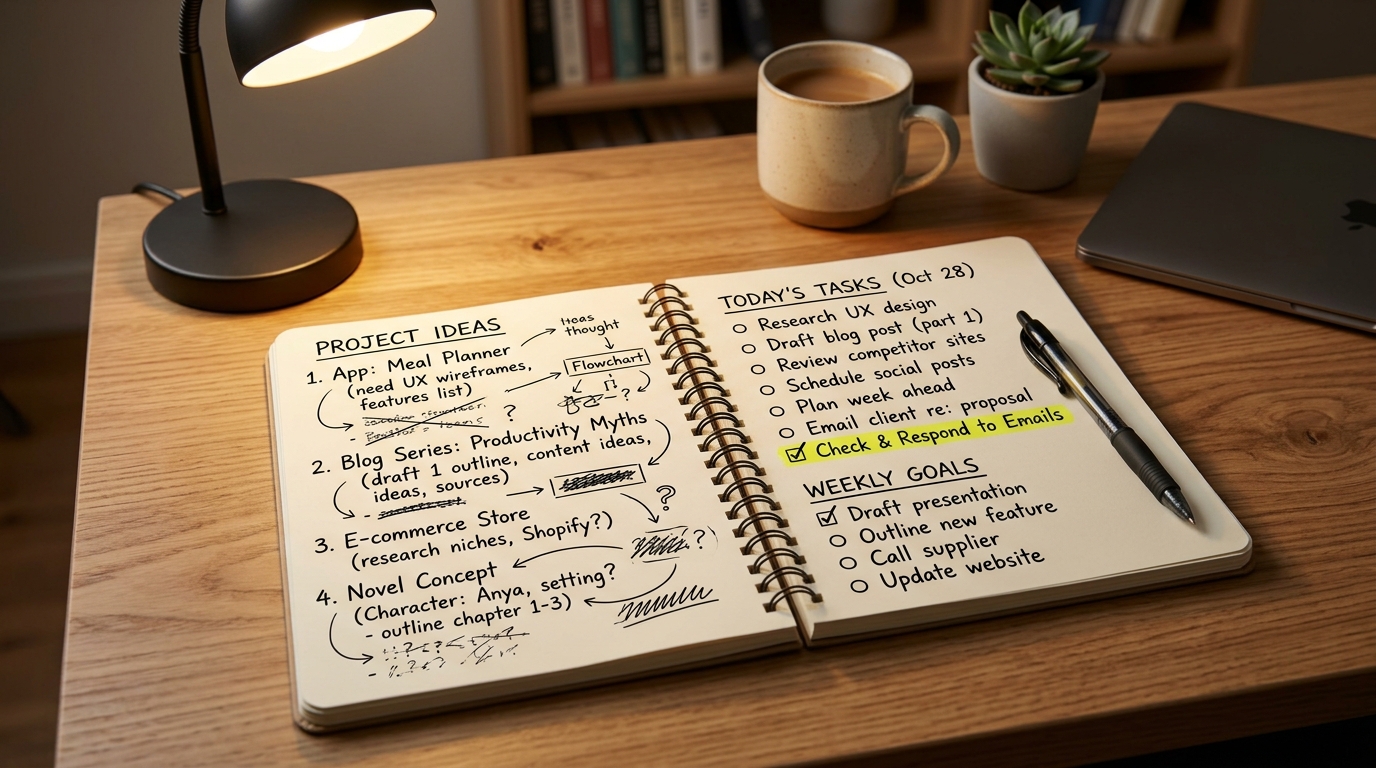 PROJECT IDEAS
1. App: Meal Planner
(need UX wireframes,
features list)
?
-
Ideas
thought
Flowchart
?
2. Blog Series: Productivity Myths
(draft 1 outline, content ideas,
ideas, sources)
-
?
3. E-commerce Store
(research niches, Shopify?)
?
4. Novel Concept
(Character: Anya, setting?
- outline chapter 1-3)
TODAY'S TASKS (Oct 28)
Research UX design
Draft blog post (part 1)
Review competitor sites
Schedule social posts
Plan week ahead
Email client re: proposal
Check & Respond to Emails
WEEKLY GOALS
Draft presentation
Outline new feature
Call supplier
Update website